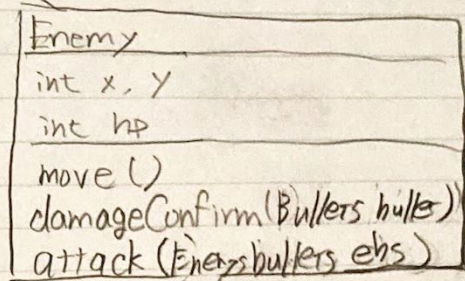 Enemy
int x, y
int hp
move ()
damageConfirm (Bullets bullet)
attack (Enemysbullets ebs)